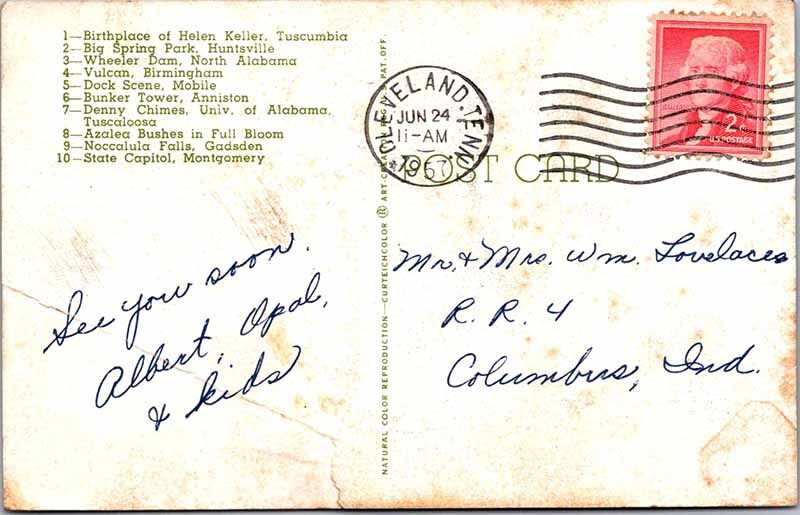 1—Birthplace of Helen Keller, Tuscumbia
2—Big Spring Park, Huntsville
3—Wheeler Dam, North Alabama
4—Vulcan, Birmingham
5—Dock Scene, Mobile
6—Bunker Tower, Anniston
7—Denny Chimes, Univ. of Alabama, Tuscaloosa
8—Azalea Bushes in Full Bloom
9—Noccalula Falls, Gadsden
10—State Capitol, Montgomery
See you soon.
Albert, Opal,
& kids
NATURAL COLOR REPRODUCTION—CURTEICHCOLOR ® ART-CREATION REG. U.S. PAT. OFF.
CLEVELAND, TENN.
JUN 24
11-AM
1957
POST CARD
2¢
U.S. POSTAGE
Mr. & Mrs. Wm. Lovelace
R. R. 4
Columbus, Ind.